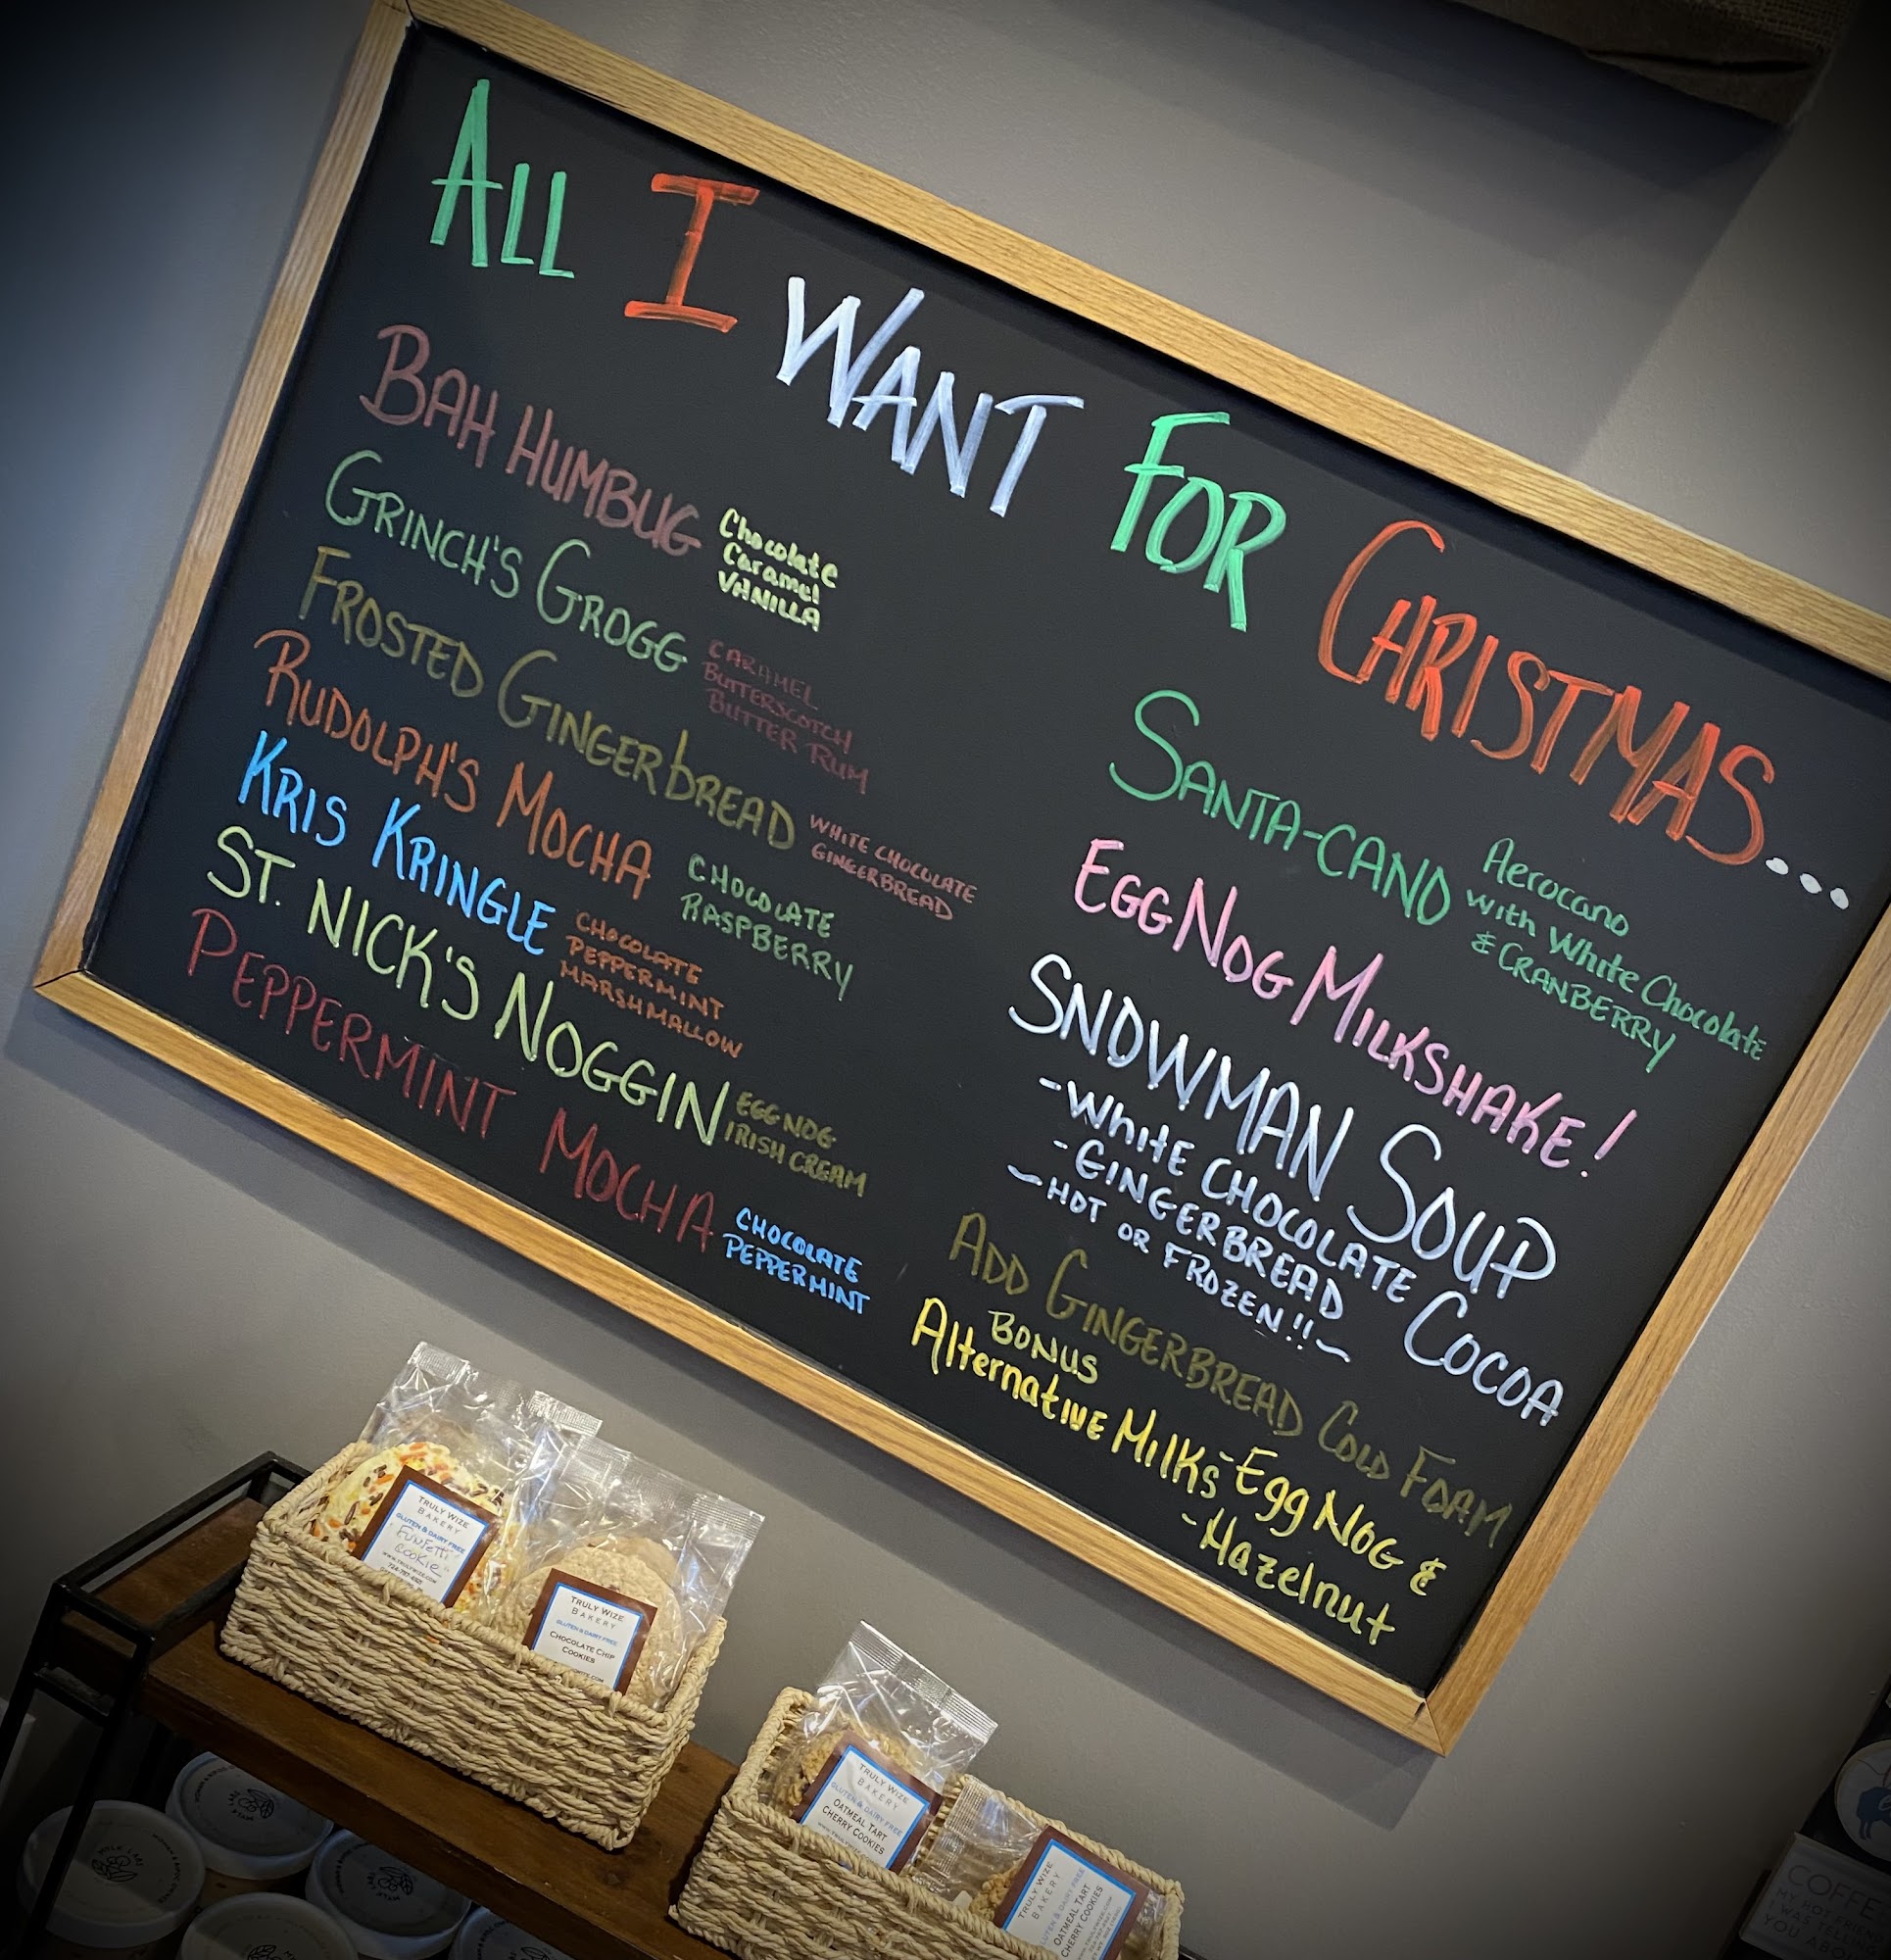 ALL I WANT FOR CHRISTMAS...
BAH HUMBUG
Chocolate
Caramel
VANILLA
GRINCH'S GROGG
CARAMEL
BUTTERSCOTCH
BUTTER RUM
FROSTED GINGERbREAD
WHITE CHOCOLATE
GINGERBREAD
RUDOLPH'S MOCHA
CHOCOLATE
RASPBERRY
KRIS KRINGLE
CHOCOLATE
PEPPERMINT
MARSHMALLOW
ST. NICK'S NOGGIN
EGG NOG
IRISH CREAM
PEPPERMINT MOCHA
CHOCOLATE
PEPPERMINT
SANTA-CANO
Aerocano
with White Chocolate
& CRANBERRY
EGG NOG MILKSHAKE!
SNOWMAN SOUP
-WHITE CHOCOLATE COCOA
-GINGERBREAD
~HOT OR FROZEN!!~
ADD GINGERBREAD COLD FOAM
BONUS
Alternative Milks-Egg NOG &
-Hazelnut
TRULY WIZE
BAKERY
GLUTEN & DAIRY FREE
Funfetti
Cookie
WWW.TRULYWIZE.COM
TRULY WIZE
BAKERY
GLUTEN & DAIRY FREE
CHOCOLATE CHIP
COOKIES
TRULY WIZE
BAKERY
GLUTEN & DAIRY FREE
OATMEAL TART
CHERRY COOKIES
TRULY WIZE
BAKERY
GLUTEN & DAIRY FREE
OATMEAL TART
CHERRY COOKIES
COFFEE